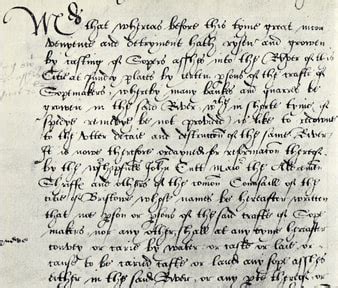 Md that whereas before this tyme great incon
venyence and detryment hath rysen and growen
by casting of Sopers asshes into the River of this
Citie at sundry places by certen psons of the crafte of
Sopemakers / whereby many bankes ar growen in the said River wch in shorte tyme, if
spedye remedye be not provided is like to
to the utter decaie and destruction of the same River
It is nowe therfore ordayned for reformacon therof
by the whorshipfull John Cutt maior the Aldermen
Shriffe and others of the comon Counsaill of the
citie of Bristowe whose names be hereafter written
that no pson or psons of the said crafte of Sope
makers nor any other, shall at any tyme hereafter
convey or carie by water or caste or laie, or
cause to be caried caste or laied any sope asshes
either in the said River, or any pte therof or